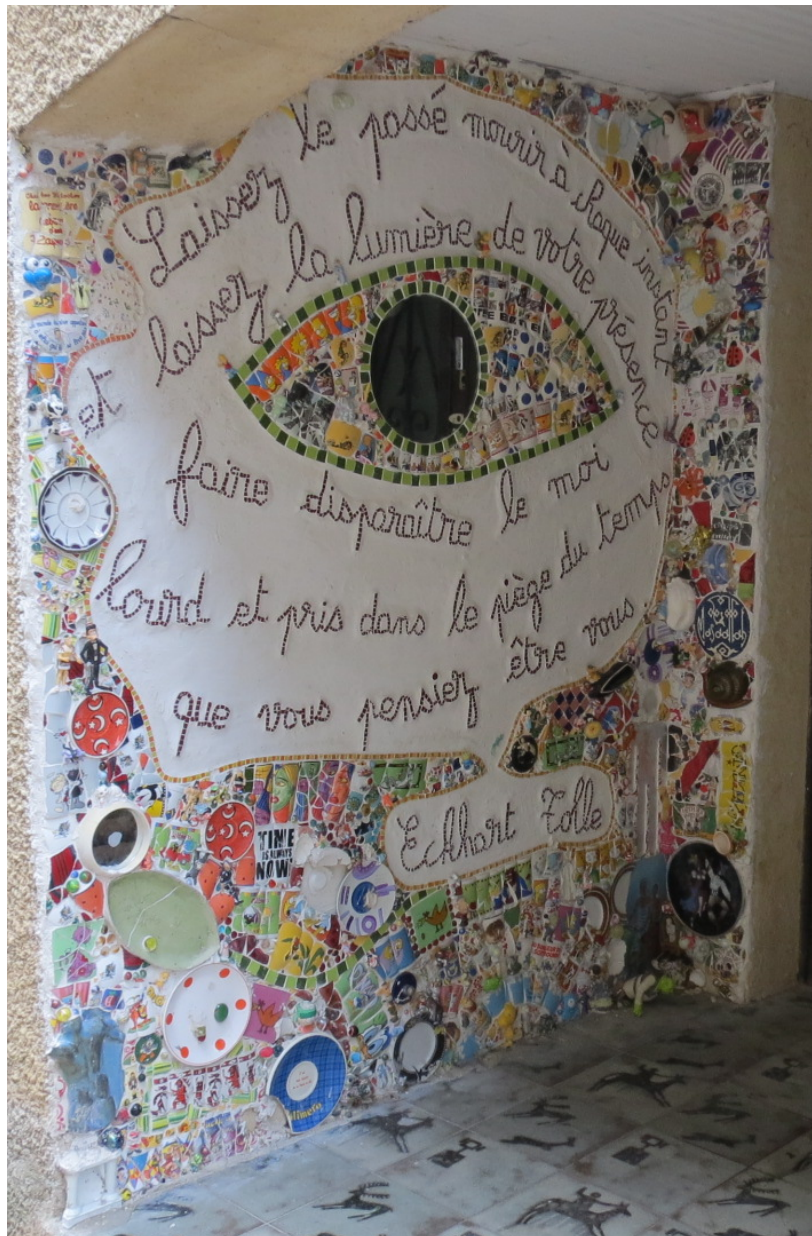 Laissez le passé mourir à chaque instant
et laissez la lumière de votre présence
faire disparaître le moi
lourd et pris dans le piège du temps
que vous pensiez être vous
Eckhart Tolle
TIME
IS ALWAYS
NOW